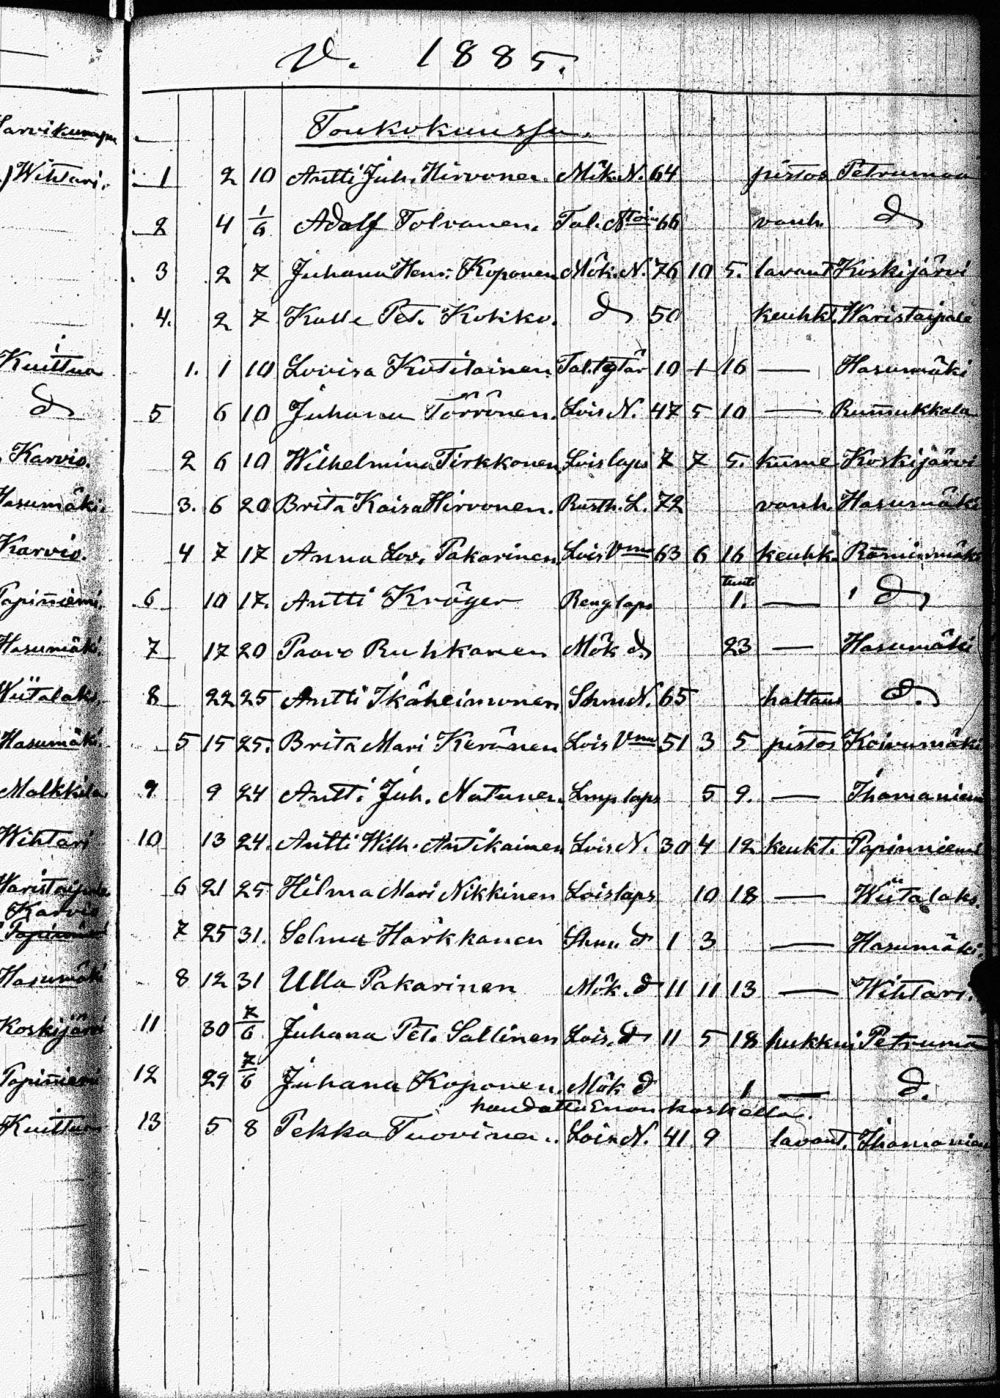 V. 1885.
Toukokuussa.
Sarvikumpu
Wihtari. 1 2 10 Antti Juh. Hirvonen. Mök. N. 64 pistos Petrumaa
2 4 1/6 Adolf Tolvanen. Tal. 66 vanh. d
3 2 7 Juhana Henr. Koponen Mök. N. 76 10 5. lavant. Koskijärvi
4. 2 7 Kalle Pet. Kokko. d 50 keuhkt. Waristaipale
Kuittua 1. 1 10 Lovisa Kotilainen. Tal. tytär 10 1 16 — Hasumäki
d 5 6 10 Juhana Törrönen. Lois N. 47 5 10 — Rummukkala
Karvio. 2 6 10 Wilhelmina Tirkkonen Lois laps 7 7 5. kume Koskijärvi
Hasumäki. 3. 6 20 Brita Kaisa Hirvonen. Rusth. L. 72 vanh. Hasumäki
Karvio. 4 7 17 Anna Lov. Pakarinen Lois Vmo 63 6 16 keuhk.
Papinniemi 6 10 17. Antti Kröger Reng laps tunt. 1. — d
Hasumäki. 7 17 20 Paavo Ruhkanen Mök d 23 — Hasumäki
Wiitalaks. 8 22 25 Antti Ikäheimonen N. 65 haltaus d.
Hasumäki 5 15 25. Brita Mari Keränen Lois Vmo 51 3 5 pistos Koivumäki
Malkkila 9 9 24 Antti Juh. Natunen. laps 5 9. — Ihamaniemi
Wihtari 10 13 24. Antti Wilh. Antikainen Lois N. 30 4 12 keukt. Papinniemi
Waristaipale 6 21 25 Hilma Mari Nikkinen Lois laps 10 18 — Wiitalaks.
Karvio
Papinniemi 7 25 31. Selma Härkkänen d 1 3 — Hasumäki.
Hasumäki 8 12 31 Ulla Pakarinen Mök. d 11 11 13 — Wihtari.
Koskijärvi 11 30 7/6 Juhana Pet. Sallinen Lois. d 11 5 18 hukkui Petrumaa
Papinniemi 12 29 7/6 Juhana Koponen. Mök d 1 — d.
haudattu Enonkoskella.
Kuittua 13 5 8 Pekka Tuovinen. Lois N. 41 9 lavant. Ihamaniemi